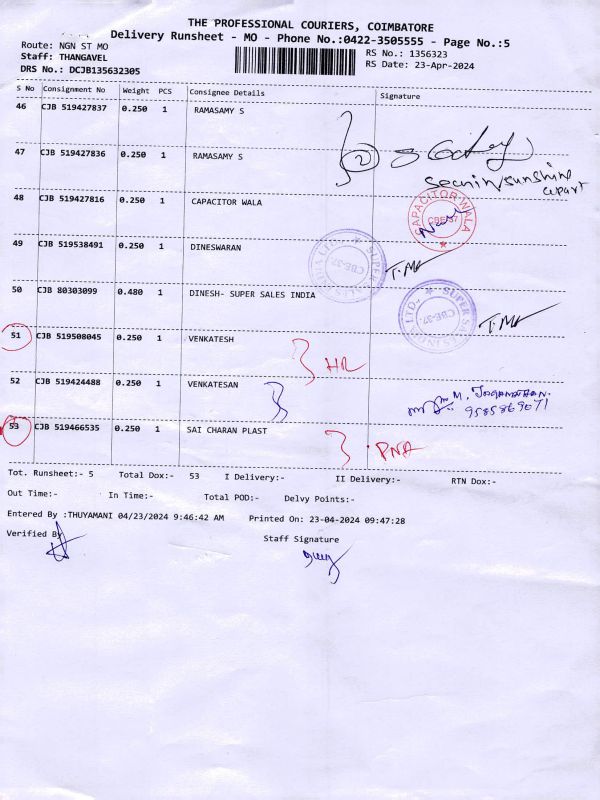 THE PROFESSIONAL COURIERS, COIMBATORE
Delivery Runsheet - MO - Phone No.:0422-3505555 - Page No.:5
Route: NGN ST MO
RS No.: 1356323
Staff: THANGAVEL
RS Date: 23-Apr-2024
DRS No.: DCJB135632305
S No Consignment No Weight PCS Consignee Details Signature
46 CJB 519427837 0.250 1 RAMASAMY S
47 CJB 519427836 0.250 1 RAMASAMY S
2
sunshine
apart
48 CJB 519427816 0.250 1 CAPACITOR WALA
CAPACITOR WALA
CBE-37
49 CJB 519538491 0.250 1 DINESWARAN
CBE-37
50 CJB 80303099 0.480 1 DINESH- SUPER SALES INDIA
SUPER SALES INDIA LTD
CBE-37
51 CJB 519508045 0.250 1 VENKATESH
52 CJB 519424488 0.250 1 VENKATESAN
9585869071
53 CJB 519466535 0.250 1 SAI CHARAN PLAST
PNA
Tot. Runsheet:- 5 Total Dox:- 53 I Delivery:- II Delivery:- RTN Dox:-
Out Time:- In Time:- Total POD:- Delvy Points:-
Entered By :THUYAMANI 04/23/2024 9:46:42 AM Printed On: 23-04-2024 09:47:28
Verified By
Staff Signature